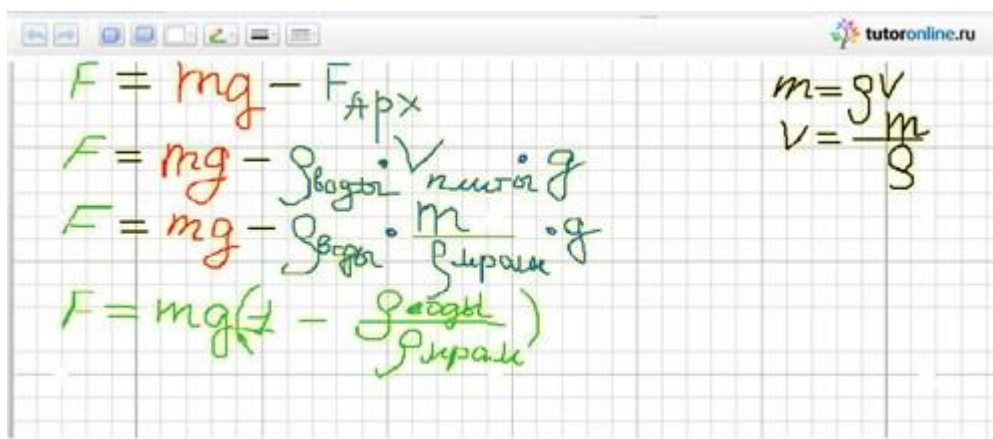 tutoronline.ru
F = mg - Fарх
F = mg - ρводы · Vплиты · g
F = mg - ρводы · m/ρмрам · g
F = mg(1 - ρводы/ρмрам)
m = ρV
V = m/ρ